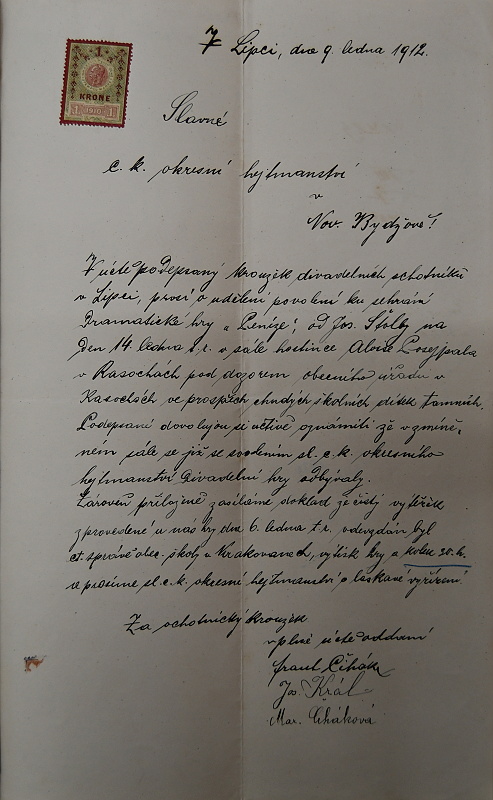 V Lipci, dne 9. ledna 1912.
1.
KRONE
1 1910 1
Slavné
c. k. okresní hejtmanství
v
Nov. Bydžově!
V úctě podepsaný kroužek divadelních ochotníků
v Lipci, prosí o udělení povolení ku sehrání
Dramatické hry „Peníze", od Jos. Štolby na
den 14. ledna t. r. v sále hostince Aloise Posejpala
v Rasochách pod dozorem obecního úřadu v
Rasochách ve prospěch chudých školních dítek tamních.
Podepsaní dovolují si uctivě oznámiti že v zmíně-
ném sále se již se svolením sl. c. k. okresního
hejtmanství divadelní hry odbývaly.
Zároveň přiloženě zasíláme doklad že čistý výtěžek
z provedené u nás hry dne 6. ledna t. r. odevzdán byl
ct. správě obec. školy v Krakovanech, výtisk hry a kolek 30 h.
a prosíme sl. c. k. okresní hejtmanství o laskavé vyřízení.
Za ochotnický kroužek
v plné úctě oddaní
Frant Čihák
Jos. Král
Mar. Čiháková